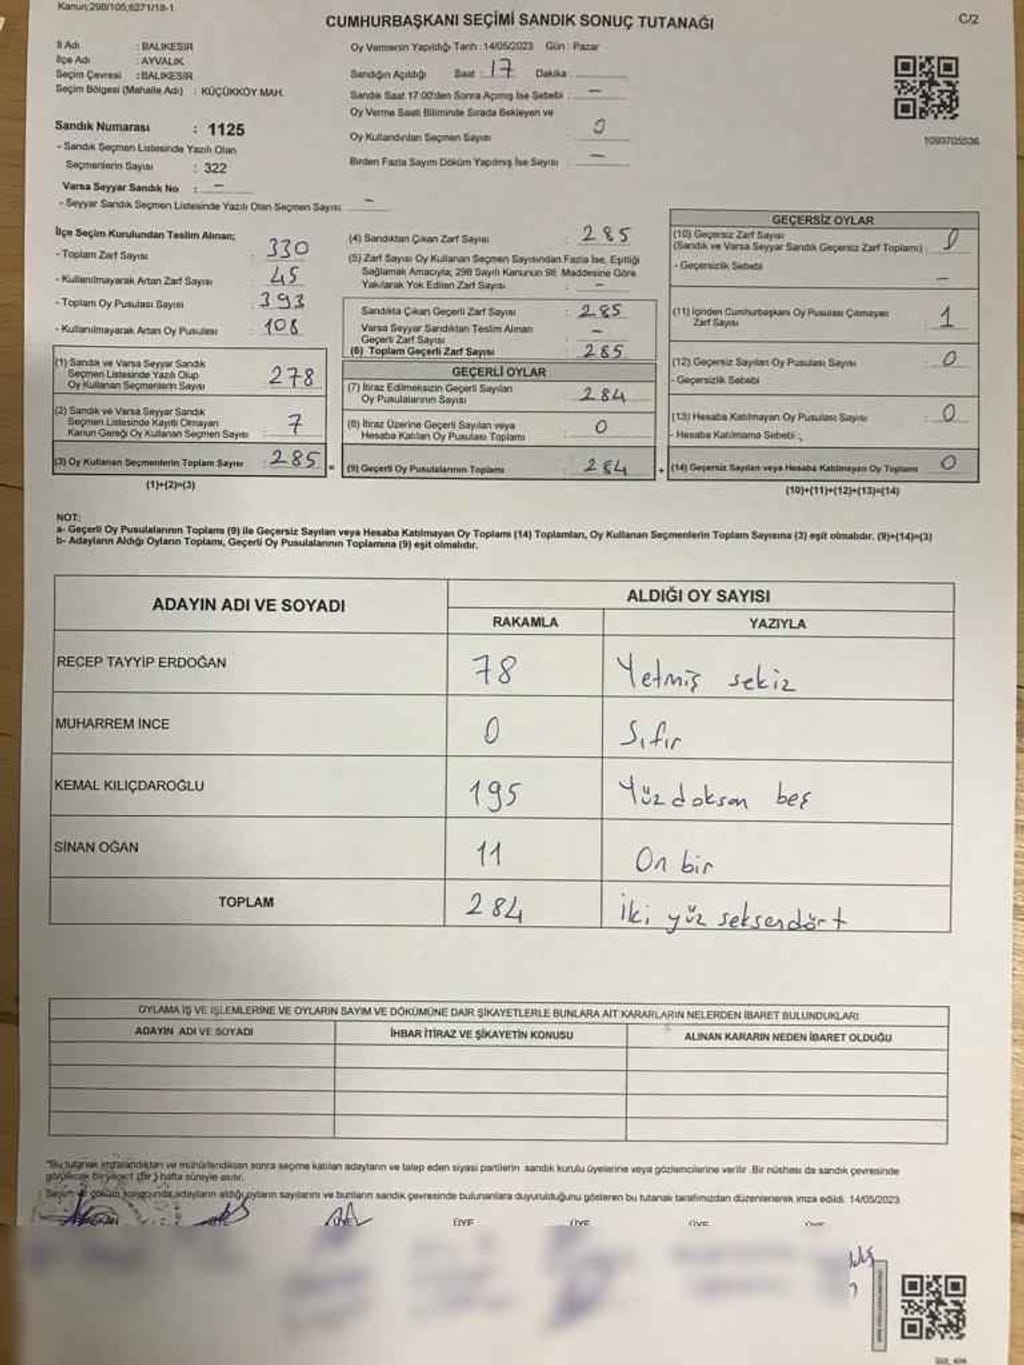 Kanun:298/105;6271/18-1
CUMHURBAŞKANI SEÇİMİ SANDIK SONUÇ TUTANAĞI
C/2
İl Adı : BALIKESİR
İlçe Adı : AYVALIK
Seçim Çevresi : BALIKESİR
Seçim Bölgesi (Mahalle Adı) : KÜÇÜKKÖY MAH.
Oy Vermenin Yapıldığı Tarih : 14/05/2023 Gün : Pazar
Sandığın Açıldığı Saat : 17 Dakika :
Sandık Saat 17:00'den Sonra Açılmış İse Sebebi : –
Oy Verme Saati Bitiminde Sırada Bekleyen ve
Oy Kullandırılan Seçmen Sayısı : 0
Birden Fazla Sayım Döküm Yapılmış İse Sayısı : –
1093705536
Sandık Numarası : 1125
- Sandık Seçmen Listesinde Yazılı Olan
Seçmenlerin Sayısı : 322
Varsa Seyyar Sandık No : –
- Seyyar Sandık Seçmen Listesinde Yazılı Olan Seçmen Sayısı : –
İlçe Seçim Kurulundan Teslim Alınan;
- Toplam Zarf Sayısı : 330
- Kullanılmayarak Artan Zarf Sayısı : 45
- Toplam Oy Pusulası Sayısı : 393
- Kullanılmayarak Artan Oy Pusulası : 108
(1) Sandık ve Varsa Seyyar Sandık
Seçmen Listesinde Yazılı Olup
Oy Kullanan Seçmenlerin Sayısı : 278
(2) Sandık ve Varsa Seyyar Sandık
Seçmen Listesinde Kayıtlı Olmayan
Kanun Gereği Oy Kullanan Seçmen Sayısı : 7
(3) Oy Kullanan Seçmenlerin Toplam Sayısı : 285
(1)+(2)=(3)
(4) Sandıktan Çıkan Zarf Sayısı : 285
(5) Zarf Sayısı Oy Kullanan Seçmen Sayısından Fazla İse, Eşitliği
Sağlamak Amacıyla, 298 Sayılı Kanunun 98. Maddesine Göre
Yakılarak Yok Edilen Zarf Sayısı : –
Sandıkta Çıkan Geçerli Zarf Sayısı : 285
Varsa Seyyar Sandıktan Teslim Alınan
Geçerli Zarf Sayısı : –
(6) Toplam Geçerli Zarf Sayısı : 285
GEÇERLİ OYLAR
(7) İtiraz Edilmeksizin Geçerli Sayılan
Oy Pusulalarının Sayısı : 284
(8) İtiraz Üzerine Geçerli Sayılan veya
Hesaba Katılan Oy Pusulası Toplamı : 0
(9) Geçerli Oy Pusulalarının Toplamı : 284
GEÇERSİZ OYLAR
(10) Geçersiz Zarf Sayısı
(Sandık ve Varsa Seyyar Sandık Geçersiz Zarf Toplamı) :
- Geçersizlik Sebebi –
(11) İçinden Cumhurbaşkanı Oy Pusulası Çıkmayan
Zarf Sayısı : 1
(12) Geçersiz Sayılan Oy Pusulası Sayısı : 0
- Geçersizlik Sebebi
(13) Hesaba Katılmayan Oy Pusulası Sayısı : 0
- Hesaba Katılmama Sebebi
(14) Geçersiz Sayılan veya Hesaba Katılmayan Oy Toplamı : 0
(10)+(11)+(12)+(13)=(14)
NOT:
a- Geçerli Oy Pusulalarının Toplamı (9) ile Geçersiz Sayılan veya Hesaba Katılmayan Oy Toplamı (14) Toplamları, Oy Kullanan Seçmenlerin Toplam Sayısına (3) eşit olmalıdır. (9)+(14)=(3)
b- Adayların Aldığı Oyların Toplamı, Geçerli Oy Pusulalarının Toplamına (9) eşit olmalıdır.
ADAYIN ADI VE SOYADI
ALDIĞI OY SAYISI
RAKAMLA YAZIYLA
RECEP TAYYİP ERDOĞAN 78 Yetmiş sekiz
MUHARREM İNCE 0 Sıfır
KEMAL KILIÇDAROĞLU 195 Yüz doksan beş
SİNAN OĞAN 11 On bir
TOPLAM 284 İki yüz seksendört
OYLAMA İŞ VE İŞLEMLERİNE VE OYLARIN SAYIM VE DÖKÜMÜNE DAİR ŞİKAYETLERLE BUNLARA AİT KARARLARIN NELERDEN İBARET BULUNDUKLARI
ADAYIN ADI VE SOYADI İHBAR İTİRAZ VE ŞİKAYETİN KONUSU ALINAN KARARIN NEDEN İBARET OLDUĞU
"Bu tutanak imzalandıktan ve mühürlendikten sonra seçime katılan adayların ve talep eden siyasi partilerin sandık kurulu üyelerine veya gözlemcilerine verilir. Bir nüshası da sandık çevresinde
görülecek bir yere 1 (Bir) hafta süreyle asılır.
Sayım ve döküm sonucunda adayların aldığı oyların sayılarını ve bunların sandık çevresinde bulunanlara duyurulduğunu gösteren bu tutanak tarafımızdan düzenlenerek imza edildi. 14/05/2023
ÜYE ÜYE ÜYE ÜYE